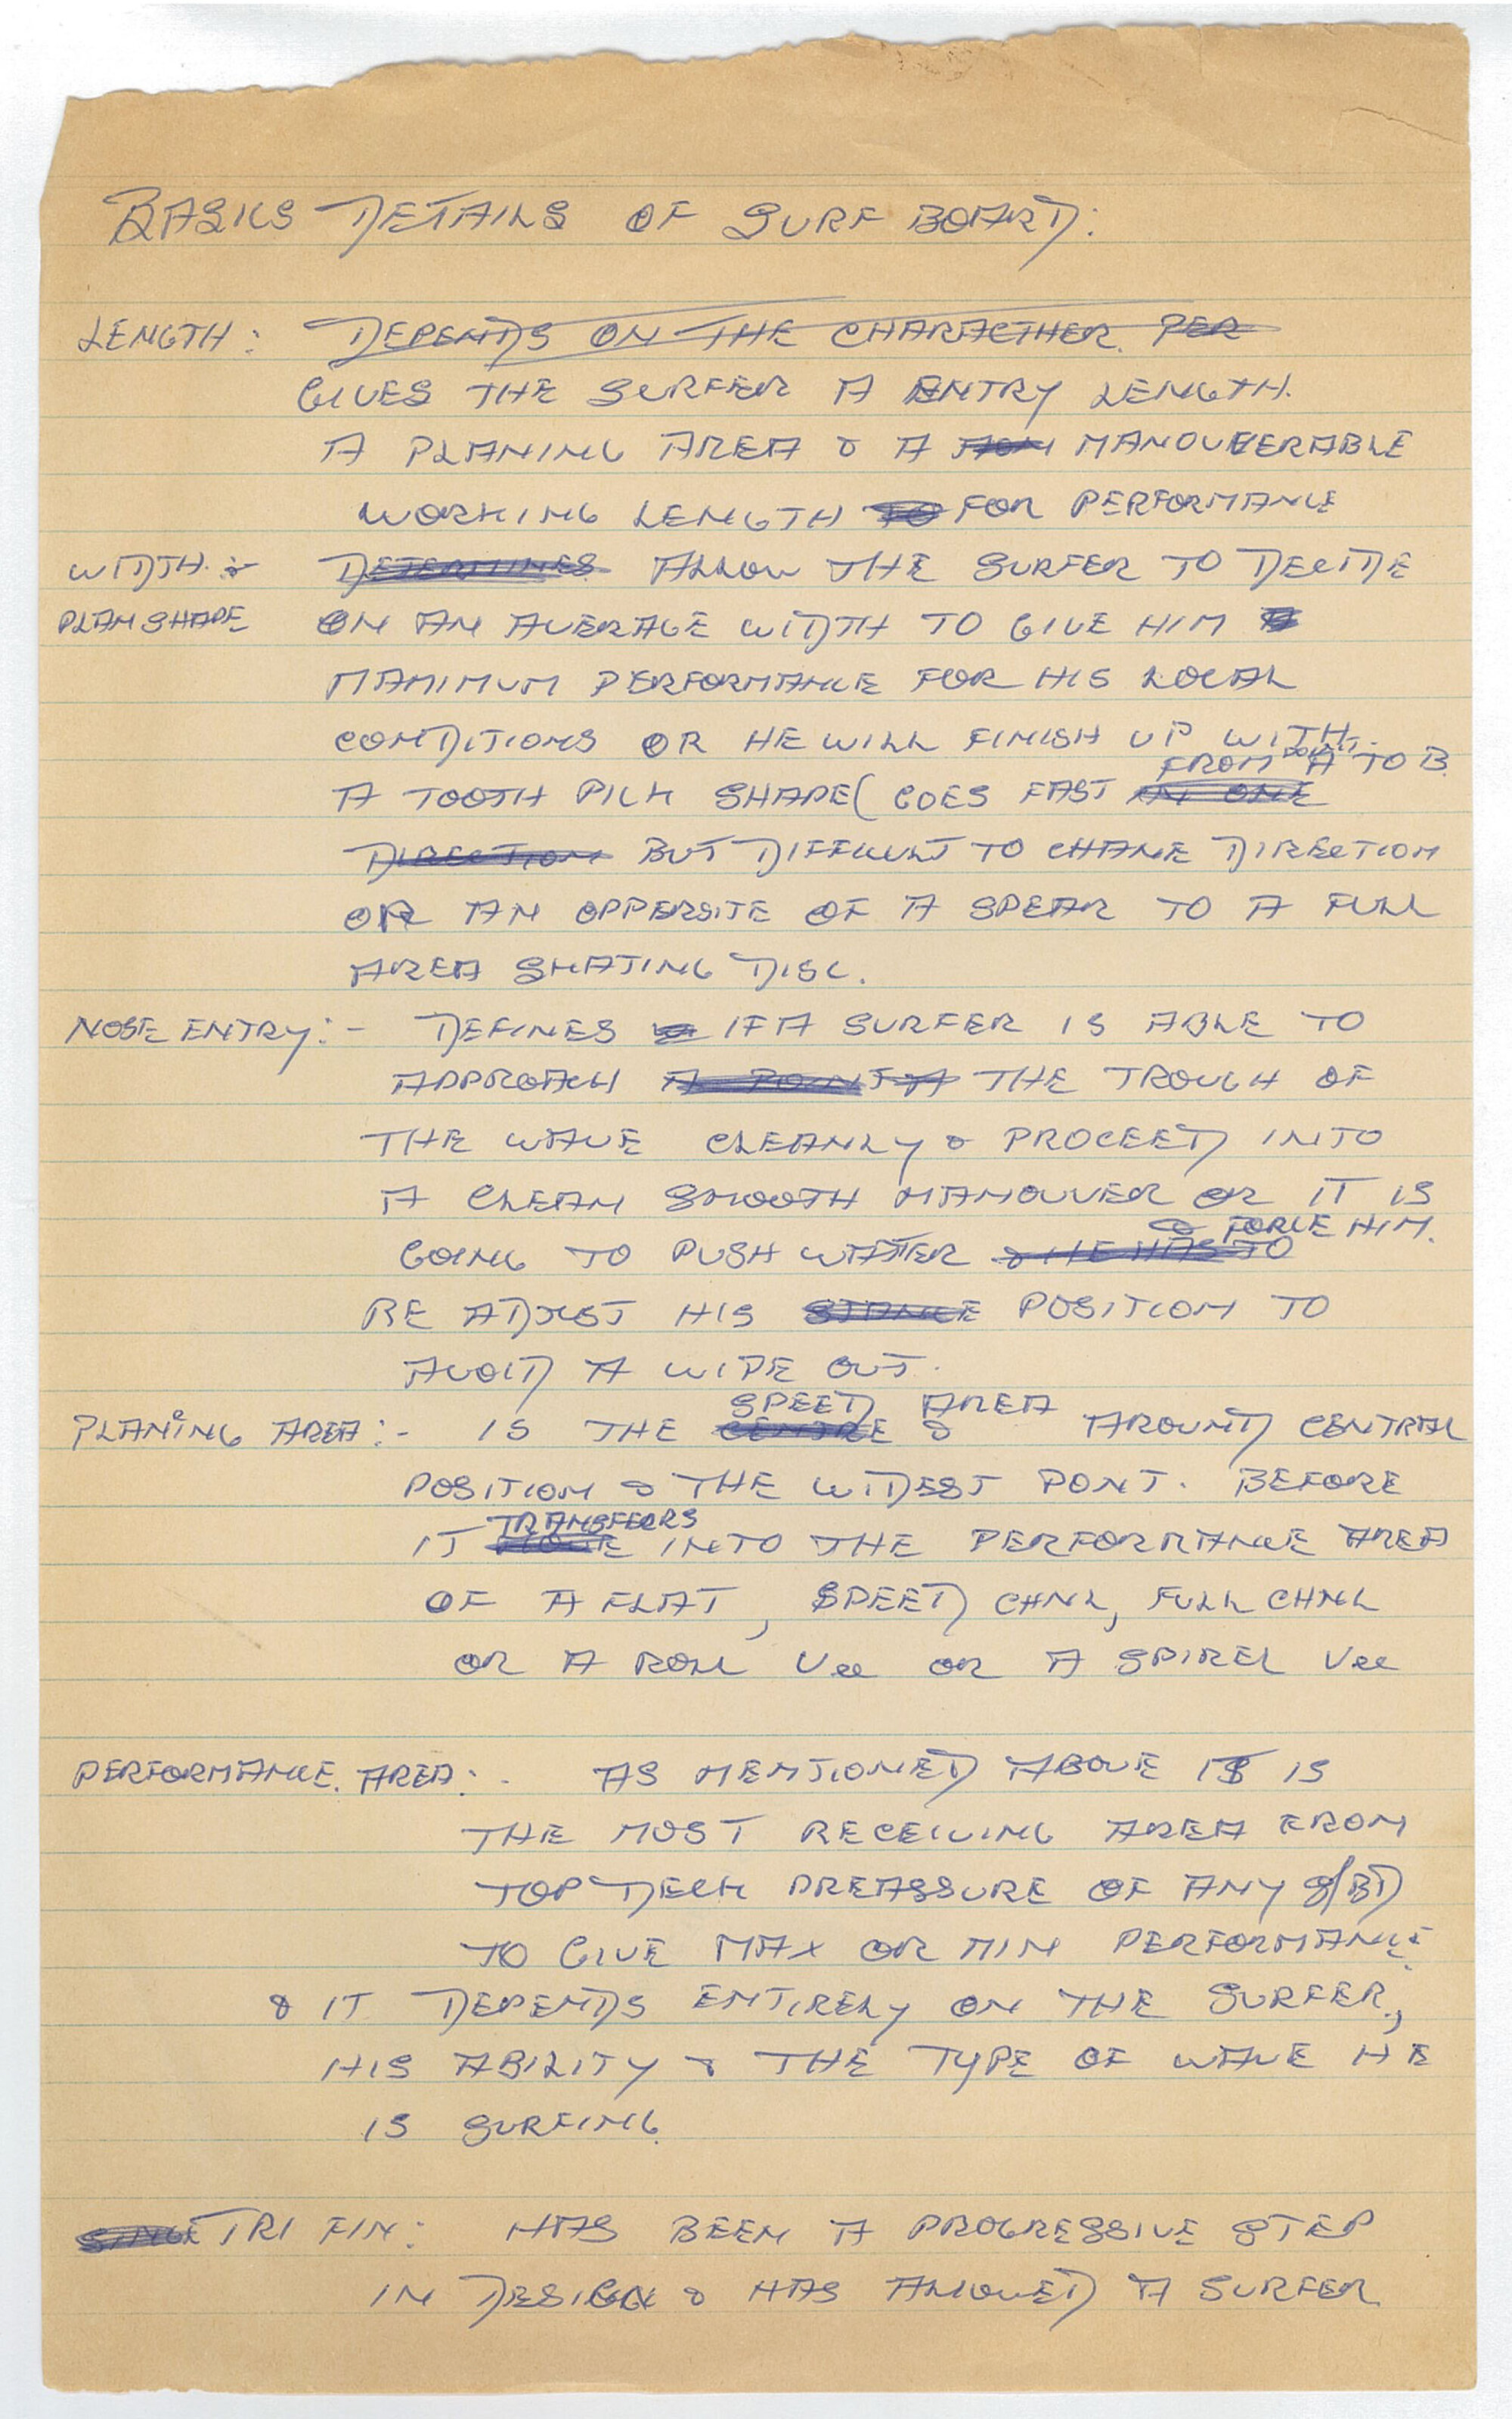 BASICS DETAILS OF SURF BOARD:
LENGTH: DEPENDS ON THE CHARACTHER PER
GIVES THE SURFER A ENTRY LENGTH.
A PLANING AREA & A MANOUVERABLE
WORKING LENGTH TO FOR PERFORMANCE
WIDTH :- DETERMINES ALLOW THE SURFER TO DECIDE
PLAN SHAPE ON AN AVERAGE WIDTH TO GIVE HIM A
MAXIMUM PERFORMANCE FOR HIS LOCAL
CONDITIONS OR HE WILL FINISH UP WITH.
FROM POINT A TO B
A TOOTH PICK SHAPE (GOES FAST IN ONE
DIRECTION BUT DIFFICULT TO CHANE DIRECTION
OR AN OPPERSITE OF A SPEAR TO A FULL
AREA SKATING DISC.
NOSE ENTRY:- DEFINES IF A SURFER IS ABLE TO
APPROACH A POINT THE TROUGH OF
THE WAVE CLEANLY & PROCEED INTO
A CLEAN SMOOTH MANOUVER OR IT IS
& FORCE HIM.
GOING TO PUSH WATER & HE HAS TO
RE ADJUST HIS STANCE POSITION TO
AVOID A WIPE OUT.
SPEED AREA
PLANING AREA:- IS THE CENTRE & AROUND CENTRAL
POSITION & THE WIDEST PONT. BEFORE
TRANSFEERS
IT MOVE INTO THE PERFORMANCE AREA
OF A FLAT, SPEED CHNL, FULL CHNL
OR A ROLL Vee OR A SPIREL Vee
PERFORMANCE. AREA: . AS MENTIONED ABOVE IS
THE MOST RECEIVING AREA FROM
TOP DECK PREASSURE OF ANY S/BD
TO GIVE MAX OR MIN PERFORMANCE
& IT DEPENDS ENTIRELY ON THE SURFER,
HIS ABILITY & THE TYPE OF WAVE HE
IS SURFING.
SINGLE TRI FIN: HAS BEEN A PROGRESSIVE STEP
IN DESIGN & HAS ALLOWED A SURFER